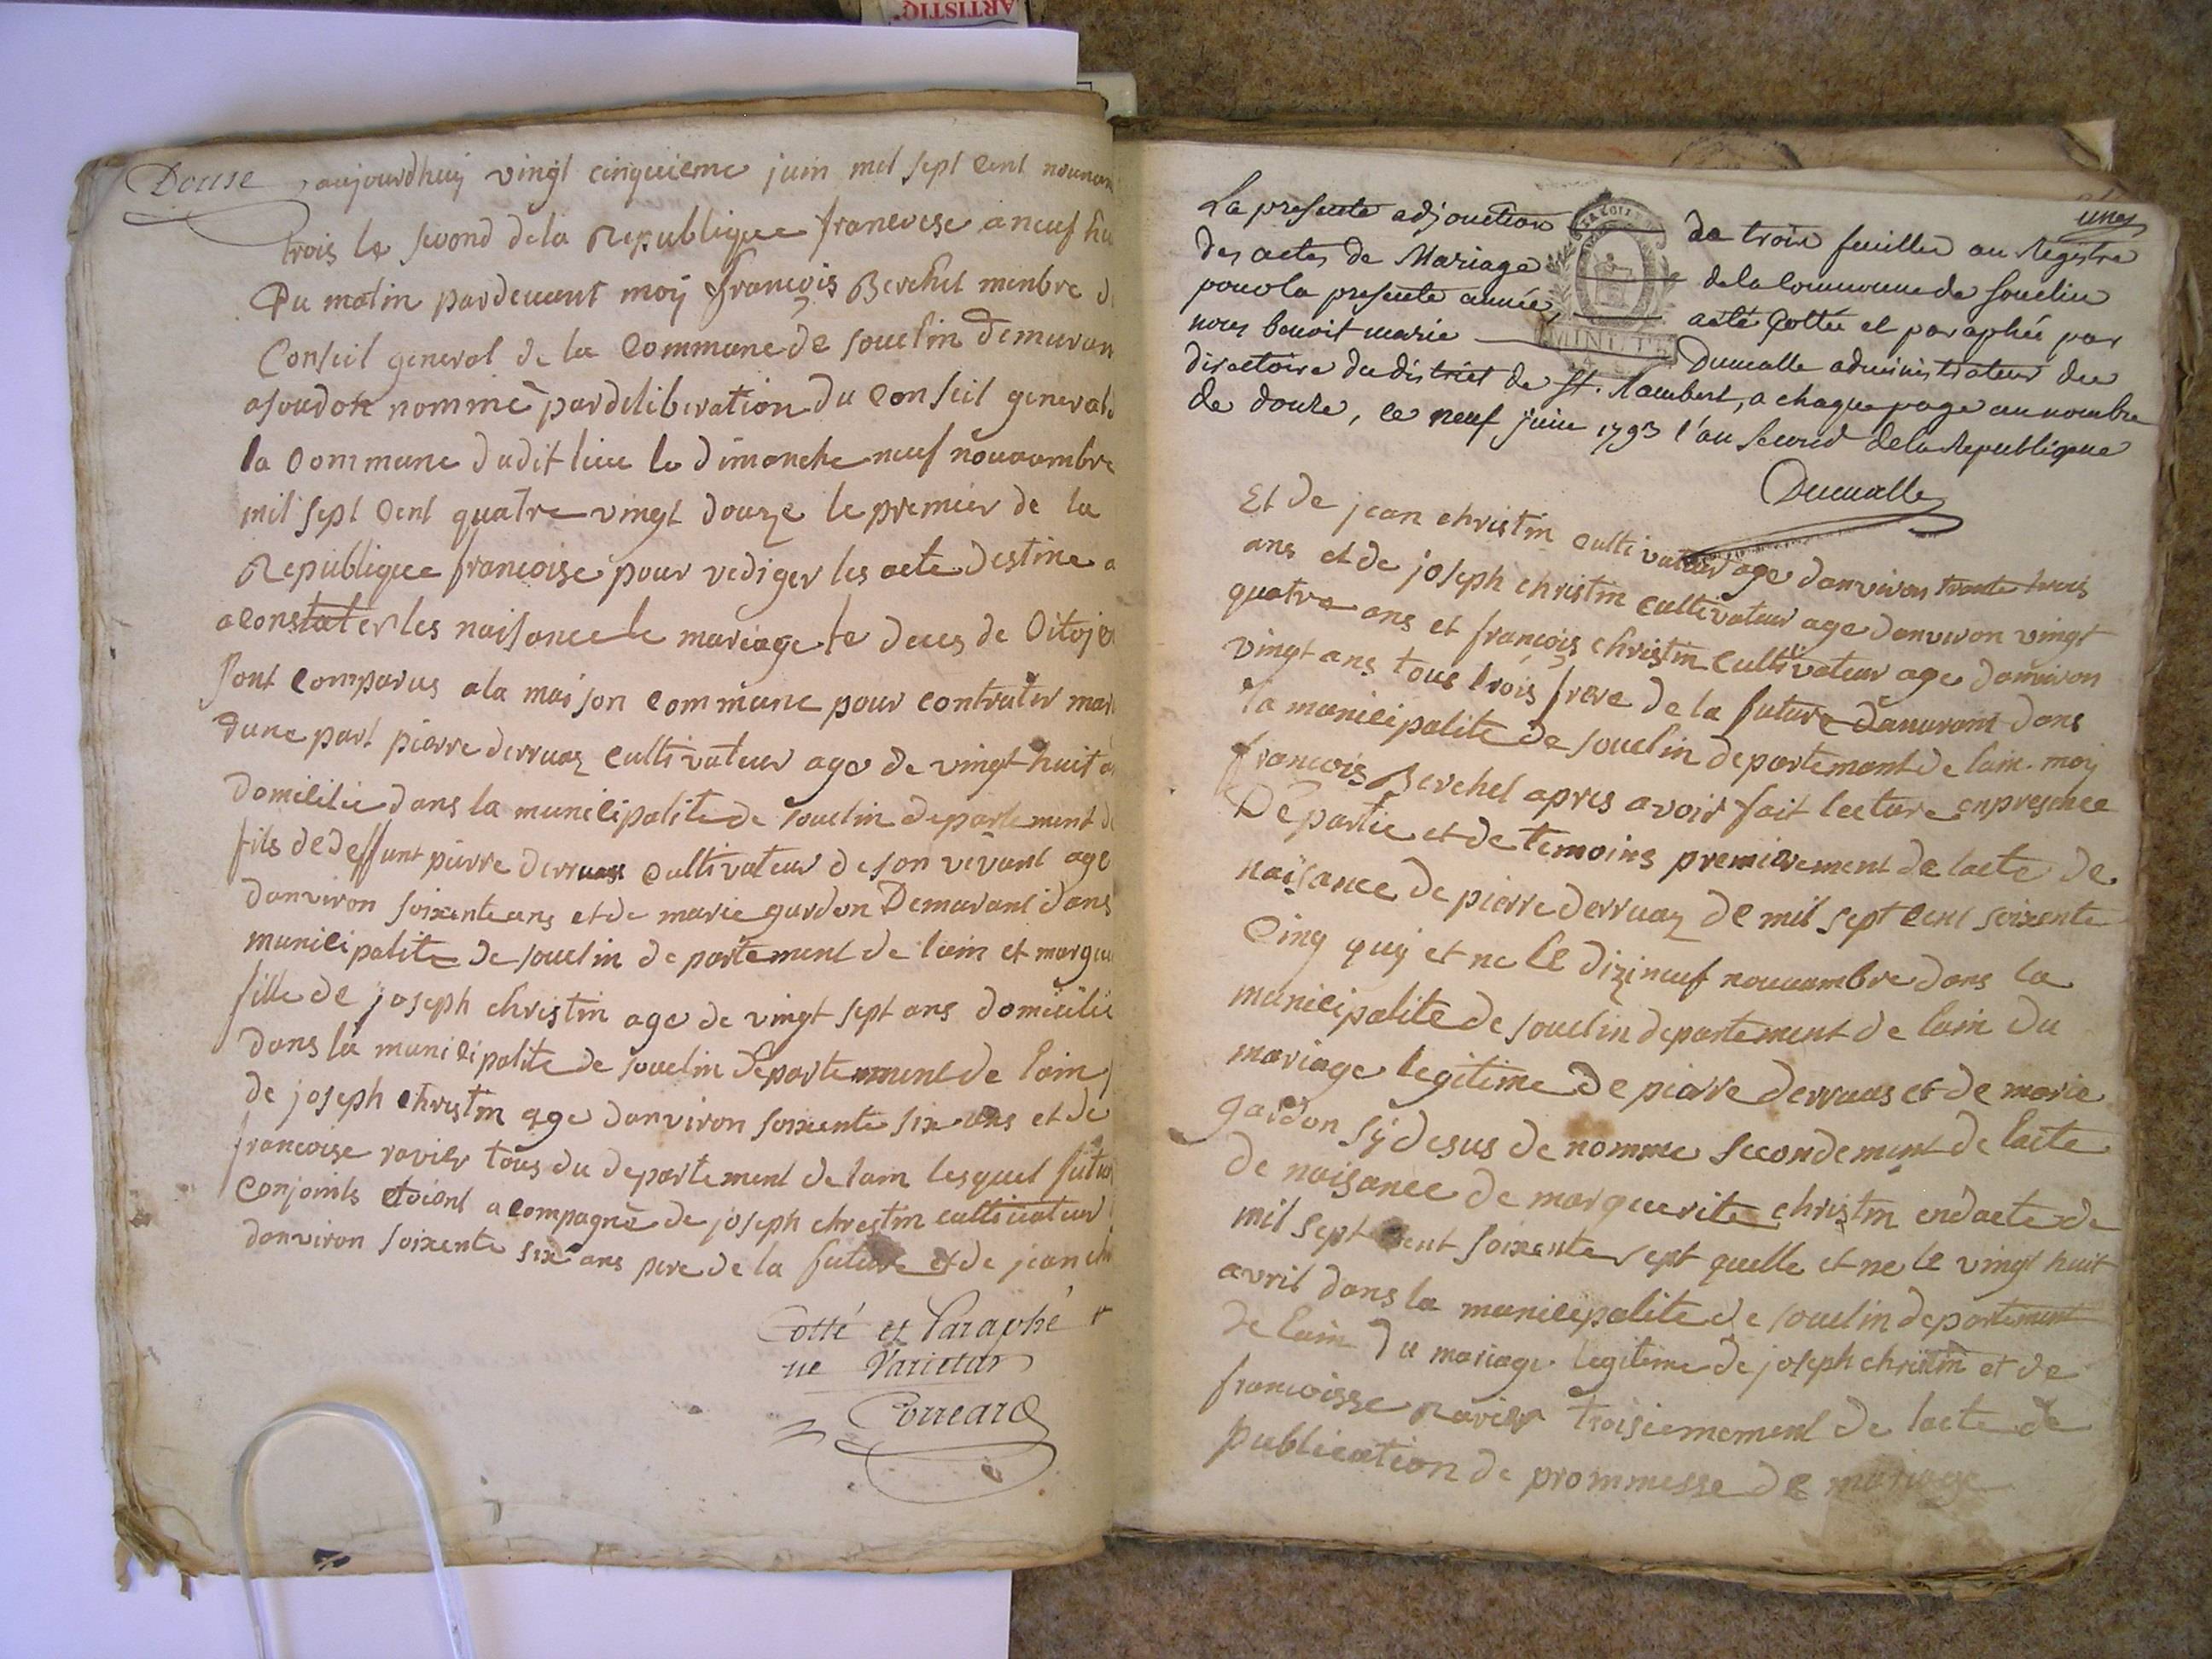 ARTISTIQ
Douse aujourdhuy vingt cinquieme juin mil sept cent nounan
trois le second dela Republique francoise a neuf heu
Du matin pardeuant moy françois Berchet menbre d
Conseil general de la Commune de souclin demuran
asoudon nomme par deliberation du Conseil general d
la Commune dudit lieu le dimanche neuf nouuambre
mil sept cent quatre vingt douze le premier de la
Republique francoise pour rediger les acte destine a
a constater les naisance le mariage le deces de Citoje
sont comparus ala maison commune pour contrater mar
dune part pierre derruaz cultivateur age de vingt huit a
domicilie dans la municipalite de souclin departement d
fils de deffunt pierre derruas cultivateur de son vivant age
danviron soixente ans et de marie gardon Demurant dans
municipalite de souclin departement de lain et margu
fille de joseph christin age de vingt sept ans domicilie
dans la municipalite de souclin departement de lain
de joseph christin age danviron soixente six ans et de
francoise ravier tous du departement de lain lesquel futu
conjoints etoient acompagné de joseph christin cultiuateur
danviron soixente six ans pere de la future et de jean ch
Cotté et Paraphé
ne Varietur
Correard
une
La presente adjonction de trois feuilles au Registre
des actes de Mariage de la Commune de souclin
pour la presente année, acté Cottée et paraphée par
nous benoit marie Ducualle administrateur du
directoire du district de St. Rambert, a chaque page au nombre
de douze, ce neuf juin 1793 l'an second de la Republique
Ducualle
MINUTE
Et de jean christin cultivateur age danviron trente trois
ans et de joseph christin cultivateur age danviron vingt
quatre ans et françois christin cultivateur age danviron
vingt ans tous trois frere de la future damurant dans
la municipalite de souclin departemant de lain. moy
francois Berchet apres avoir fait lecture en presence
De partie et de temoins premierement de lacte de
naisance de pierre derruaz de mil sept cent soixente
Cinq quy et ne le dizineuf nouuambre dans la
municipalite de souclin departement de lain du
mariage legitime de pierre derruas et de marie
gardon sy desus de nomme secondement de lacte
de naisance de marguerite christin en dacte de
mil sept cent soixente sept quelle et ne le vingt huit
avril dans la municepalite de souclin departement
de lain du mariage legitime de joseph christin et de
francoisse ravier troisiemement de lacte de
publication de prommesse de mariage